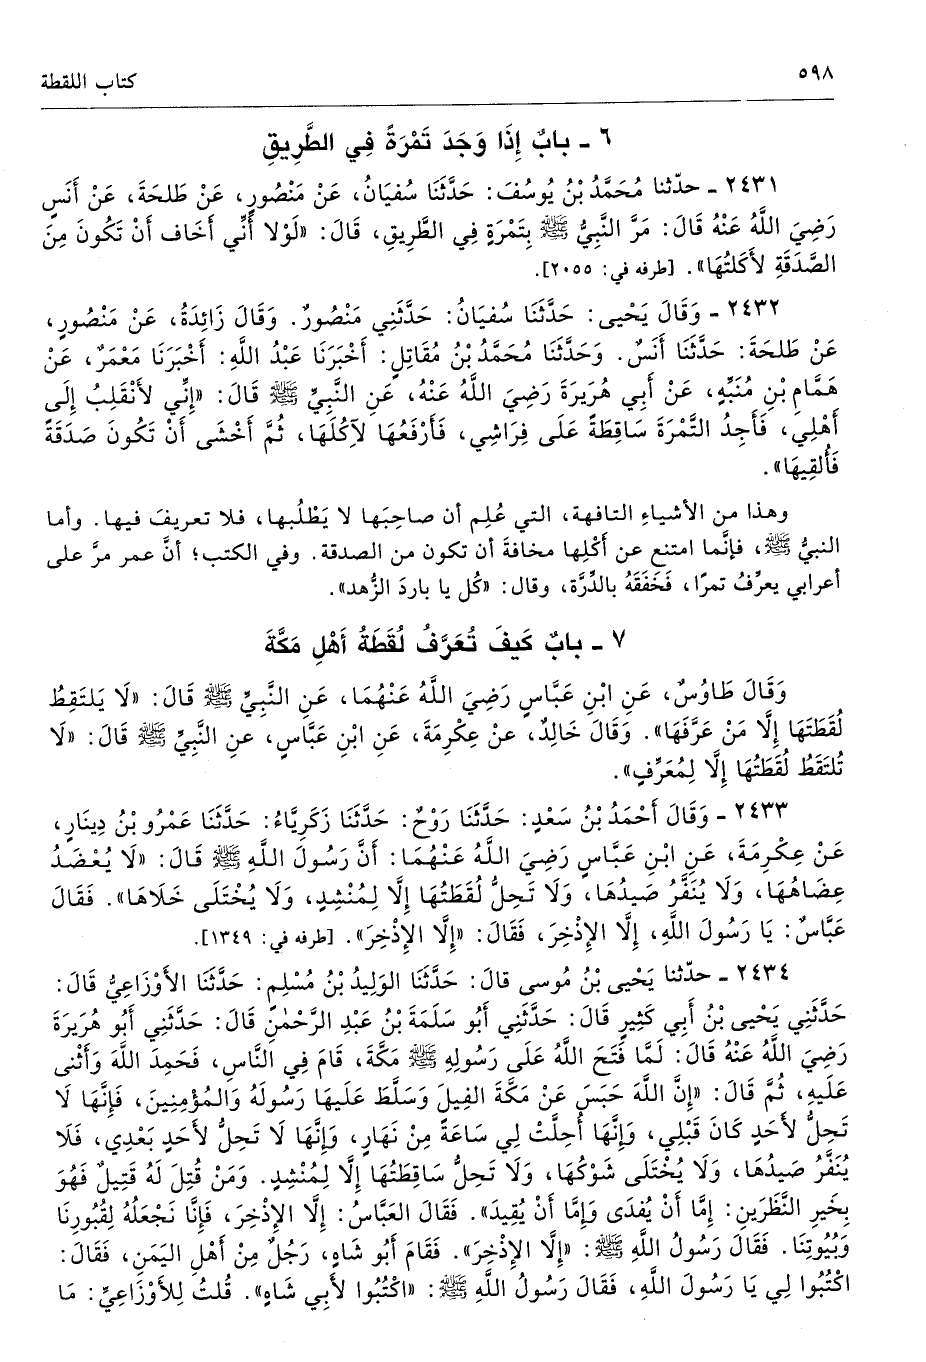 ٥٩٨
كتاب اللقطة
٦ ـ بابٌ إِذَا وَجَدَ تَمْرَةً فِي الطَّرِيقِ
٢٤٣١ ـ حدّثنا مُحَمَّدُ بْنُ يُوسُفَ: حَدَّثَنَا سُفيَانُ، عَنْ مَنْصُورٍ، عَنْ طَلحَةَ، عَنْ أَنَسٍ
رَضِيَ اللَّهُ عَنْهُ قَالَ: مَرَّ النَّبِيُّ ﷺ بِتَمْرَةٍ فِي الطَّرِيقِ، قَالَ: «لَوْلَا أَنِّي أَخَاف أَنْ تَكُونَ مِنَ
الصَّدَقَةِ لأَكَلتُهَا». [طرفه في: ٢٠٥٥].
٢٤٣٢ ـ وَقَالَ يَحْيى: حَدَّثَنَا سُفيَانُ: حَدَّثَنِي مَنْصُورٌ. وَقَالَ زَائِدَةُ، عَنْ مَنْصُورٍ،
عَنْ طَلحَةَ: حَدَّثَنَا أَنَسٌ. وَحَدَّثَنَا مُحَمَّدُ بْنُ مُقَاتِلٍ: أَخْبَرَنَا عَبْدُ اللَّهِ: أَخْبَرَنَا مَعْمَرٌ، عَنْ
هَمَّامِ بْنِ مُنَبِّهٍ، عَنْ أَبِي هُرَيرَةَ رَضِيَ اللَّهُ عَنْهُ، عَنِ النَّبِيِّ ﷺ قَالَ: «إِنِّي لأَنْقَلِبُ إِلَى
أَهْلِي، فَأَجِدُ التَّمْرَةَ سَاقِطَةً عَلَى فِرَاشِي، فَأَرْفَعُهَا لآكُلَهَا، ثُمَّ أَخْشَى أَنْ تَكُونَ صَدَقَةً
فَأُلقِيهَا».
وهذا من الأشياءِ التافهة، التي عُلِم أن صاحِبَها لا يَطْلُبها، فلا تعريفَ فيها. وأما
النبيُّ ﷺ، فإِنَّما امتنع عن أَكْلِها مخافةَ أن تكون من الصدقة. وفي الكتب؛ أنَّ عمر مرَّ على
أعرابي يعرِّفُ تمرًا، فَخَفَقَهُ بالدِّرَّة، وقال: «كُل يا باردَ الزُّهد».
٧ ـ بابٌ كَيفَ تُعَرَّفُ لُقَطَةُ أَهْلِ مَكَّةَ
وَقَالَ طَاوُسٌ، عَنِ ابْنِ عَبَّاسٍ رَضِيَ اللَّهُ عَنْهُمَا، عَنِ النَّبِيِّ ﷺ قَالَ: «لَا يَلتَقِطُ
لُقَطَتَهَا إِلَّا مَنْ عَرَّفَهَا». وَقَالَ خَالِدٌ، عَنْ عِكْرِمَةَ، عَنِ ابْنِ عَبَّاسٍ، عنِ النَّبِيِّ ﷺ قَالَ: «لَا
تُلتَقَطُ لُقَطَتُهَا إِلَّا لِمُعَرِّفٍ».
٢٤٣٣ ـ وَقَالَ أَحْمَدُ بْنُ سَعْدٍ: حَدَّثَنَا رَوْحٌ: حَدَّثَنَا زَكَرِيَّاءُ: حَدَّثَنَا عَمْرُو بْنُ دِينَارٍ،
عَنْ عِكْرِمَةَ، عَنِ ابْنِ عَبَّاسٍ رَضِيَ اللَّهُ عَنْهُمَا: أَنَّ رَسُولَ اللَّهِ ﷺ قَالَ: «لَا يُعْضَدُ
عِضَاهُهَا، وَلَا يُنَفَّرُ صَيدُهَا، وَلَا تَحِلُّ لُقَطَتُهَا إِلَّا لِمُنْشِدٍ، وَلَا يُخْتَلَى خَلَاهَا». فَقَالَ
عَبَّاسٌ: يَا رَسُولَ اللَّهِ، إِلَّا الإِذْخِرَ، فَقَالَ: «إِلَّا الإِذْخِرَ». [طرفه في: ١٣٤٩].
٢٤٣٤ ـ حدّثنا يَحْيى بْنُ مُوسى قالَ: حَدَّثَنَا الوَلِيدُ بْنُ مُسْلِمٍ: حَدَّثَنَا الأَوْزَاعِيُّ قَالَ:
حَدَّثَنِي يَحْيى بْنُ أَبِي كَثِيرٍ قَالَ: حَدَّثَنِي أَبُو سَلَمَةَ بْنُ عَبْدِ الرَّحْمٰنِ قَالَ: حَدَّثَنِي أَبُو هُرَيرَةَ
رَضِيَ اللَّهُ عَنْهُ قَالَ: لَمَّا فَتَحَ اللَّهُ عَلَى رَسُولِهِ ﷺ مَكَّةَ، قَامَ فِي النَّاسِ، فَحَمِدَ اللَّهَ وَأَثْنى
عَلَيهِ، ثُمَّ قَالَ: «إِنَّ اللَّهَ حَبَسَ عَنْ مَكَّةَ الفِيلَ وَسَلَّطَ عَلَيهَا رَسُولَهُ وَالمُؤْمِنِينَ، فَإِنَّهَا لَا
تَحِلُّ لأَحَدٍ كَانَ قَبْلِي، وَإِنَّهَا أُحِلَّتْ لِي سَاعَةً مِنْ نَهَارٍ، وَإِنَّهَا لَا تَحِلُّ لأَحَدٍ بَعْدِي، فَلَا
يُنَفَّرُ صَيدُهَا، وَلَا يُخْتَلَى شَوْكُهَا، وَلَا تَحِلُّ سَاقِطَتُهَا إِلَّا لِمُنْشِدٍ. وَمَنْ قُتِلَ لَهُ قَتِيلٌ فَهُوَ
بِخَيرِ النَّظَرَينِ: إِمَّا أَنْ يُفدَى وَإِمَّا أَنْ يُقِيدَ». فَقَالَ العَبَّاسُ: إِلَّا الإِذْخِرَ، فَإِنَّا نَجْعَلُهُ لِقُبُورِنَا
وَبُيُوتِنَا. فَقَالَ رَسُولُ اللَّهِ ﷺ: «إِلَّا الإِذْخِرَ». فَقَامَ أَبُو شَاهٍ، رَجُلٌ مِنْ أَهْلِ اليَمَنِ، فَقَالَ:
اكْتُبُوا لِي يَا رَسُولَ اللَّهِ، فَقَالَ رَسُولُ اللَّهِ ﷺ: «اكْتُبُوا لأَبِي شَاهٍ». قُلتُ لِلأَوْزَاعِيِّ: مَا